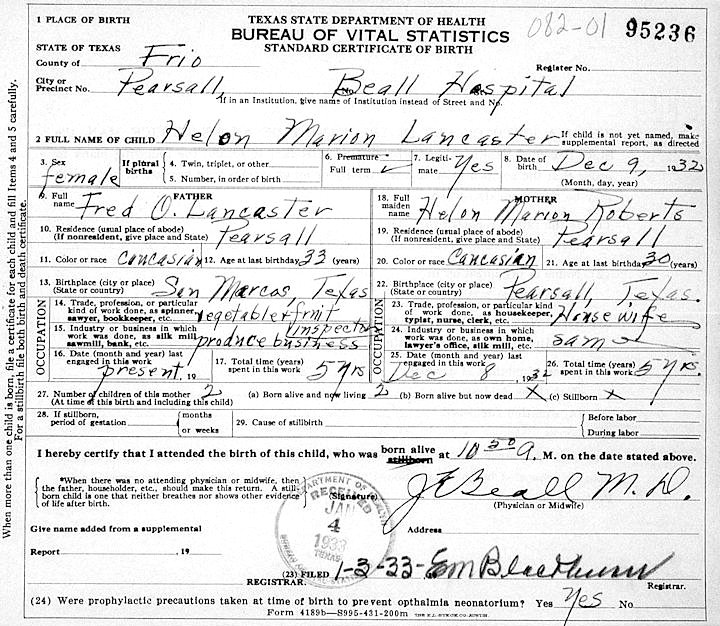 1 PLACE OF BIRTH
TEXAS STATE DEPARTMENT OF HEALTH
BUREAU OF VITAL STATISTICS
STANDARD CERTIFICATE OF BIRTH
082-01 95236
STATE OF TEXAS
County of Frio
Register No.
City or Precinct No. Pearsall, No. Beall Hospital St.
If in an Institution, give name of Institution instead of Street and No.
2 FULL NAME OF CHILD Helon Marion Lancaster
If child is not yet named, make supplemental report, as directed
3. Sex female
If plural births
4. Twin, triplet, or other
5. Number, in order of birth
6. Premature
Full term ✓
7. Legitimate Yes
8. Date of birth Dec 9, 1932
(Month, day, year)
FATHER
9. Full name Fred O. Lancaster
10. Residence (usual place of abode) (If nonresident, give place and State) Pearsall
11. Color or race Caucasian 12. Age at last birthday 33 (years)
13. Birthplace (city or place) (State or country) San Marcos, Texas
OCCUPATION
14. Trade, profession, or particular kind of work done, as spinner, sawyer, bookkeeper, etc. vegetable & fruit inspector
15. Industry or business in which work was done, as silk mill, sawmill, bank, etc. produce business
16. Date (month and year) last engaged in this work present, 19
17. Total time (years) spent in this work 5 yrs
MOTHER
18. Full maiden name Helon Marion Roberts
19. Residence (usual place of abode) (If nonresident, give place and State) Pearsall
20. Color or race Caucasian 21. Age at last birthday 30 (years)
22. Birthplace (city or place) (State or country) Pearsall, Texas.
OCCUPATION
23. Trade, profession, or particular kind of work done, as housekeeper, typist, nurse, clerk, etc. Housewife
24. Industry or business in which work was done, as own home, lawyer's office, silk mill, etc. Sam
25. Date (month and year) last engaged in this work Dec 8, 1932
26. Total time (years) spent in this work 5 yrs.
27. Number of children of this mother (At time of this birth and including this child) 2 (a) Born alive and now living 2 (b) Born alive but now dead X (c) Stillborn X
28. If stillborn, period of gestation months or weeks
29. Cause of stillbirth
Before labor
During labor
I hereby certify that I attended the birth of this child, who was born alive stillborn at 10 50 a. M. on the date stated above.
*When there was no attending physician or midwife, then the father, householder, etc., should make this return. A stillborn child is one that neither breathes nor shows other evidence of life after birth.
(Signature) Beall M.D.
(Physician or Midwife)
Give name added from a supplemental
Address
Report , 19
RECEIVED
JAN
4
1933
(23) FILED 1-3-33- Em Blackburn
REGISTRAR.
Registrar.
(24) Were prophylactic precautions taken at time of birth to prevent opthalmia neonatorium? Yes Yes No
Form 4189b—S995-431-200m
When more than one child is born, file a certificate for each child and fill Items 4 and 5 carefully.
For a stillbirth file both birth and death certificate.